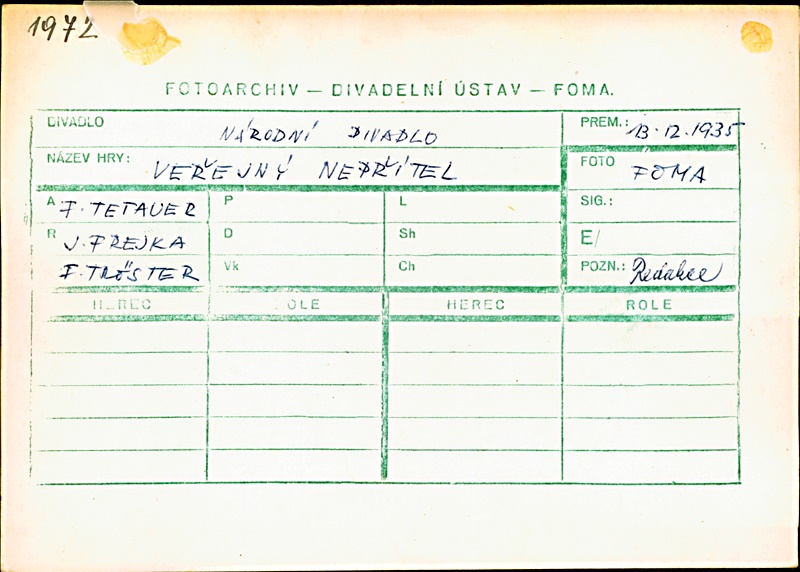 1972
FOTOARCHIV – DIVADELNÍ ÚSTAV – FOMA.
DIVADLO NÁRODNÍ DIVADLO PREM.: 13.12.1935
NÁZEV HRY: VEŘEJNÝ NEPŘÍTEL FOTO FOMA
A F. TETAUER P L SIG.:
R J. FREJKA D Sh E/
F. TRÖSTER Vk Ch POZN.: Redakce
HEREC ROLE HEREC ROLE